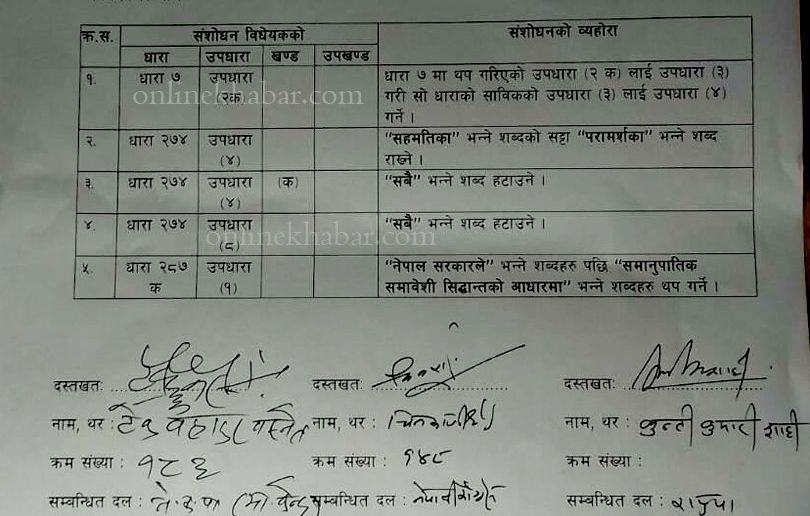 क्र.स. संशोधन विधेयकको संशोधनको व्यहोरा
धारा उपधारा खण्ड उपखण्ड
१. धारा ७ उपधारा धारा ७ मा थप गरिएको उपधारा (२ क) लाई उपधारा (३)
(२क) गरी सो धाराको साविकको उपधारा (३) लाई उपधारा (४)
गर्ने ।
onlinekhabar.com
२. धारा २७४ उपधारा "सहमतिका" भन्ने शब्दको सट्टा "परामर्शका" भन्ने शब्द
(४) राख्ने ।
३. धारा २७४ उपधारा (क) "सबै" भन्ने शब्द हटाउने ।
(४)
४. धारा २७४ उपधारा "सबै" भन्ने शब्द हटाउने ।
(८)
onlinekhabar.com
५. धारा २८७ उपधारा "नेपाल सरकारले" भन्ने शब्दहरु पछि "समानुपातिक
क (१) समावेशी सिद्धान्तको आधारमा" भन्ने शब्दहरु थप गर्ने ।
दस्तखत: दस्तखत: दस्तखत:
नाम, थर : टेक बहादुर बस्नेत नाम, थर : नाम, थर : कुन्ती कुमारी शाही
क्रम संख्या : १८६ क्रम संख्या : १४८ क्रम संख्या :
सम्बन्धित दल : सम्बन्धित दल : सम्बन्धित दल : राप्रपा